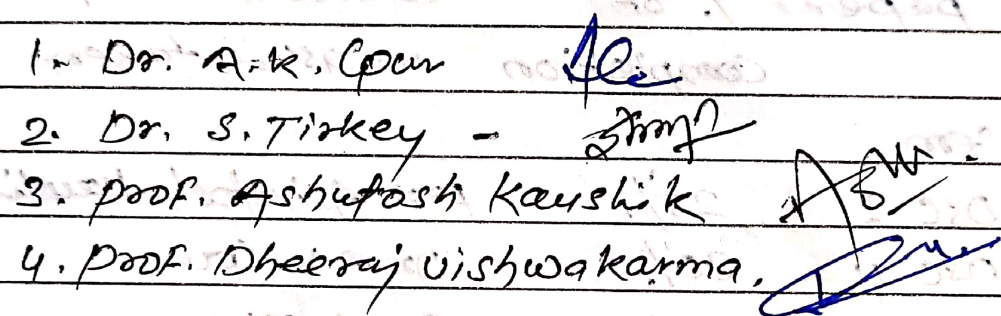 1. Dr. A.K. Gour
2. Dr. S. Tirkey -
3. Prof. Ashutosh Kaushik
4. Prof. Dheeraj Vishwakarma.